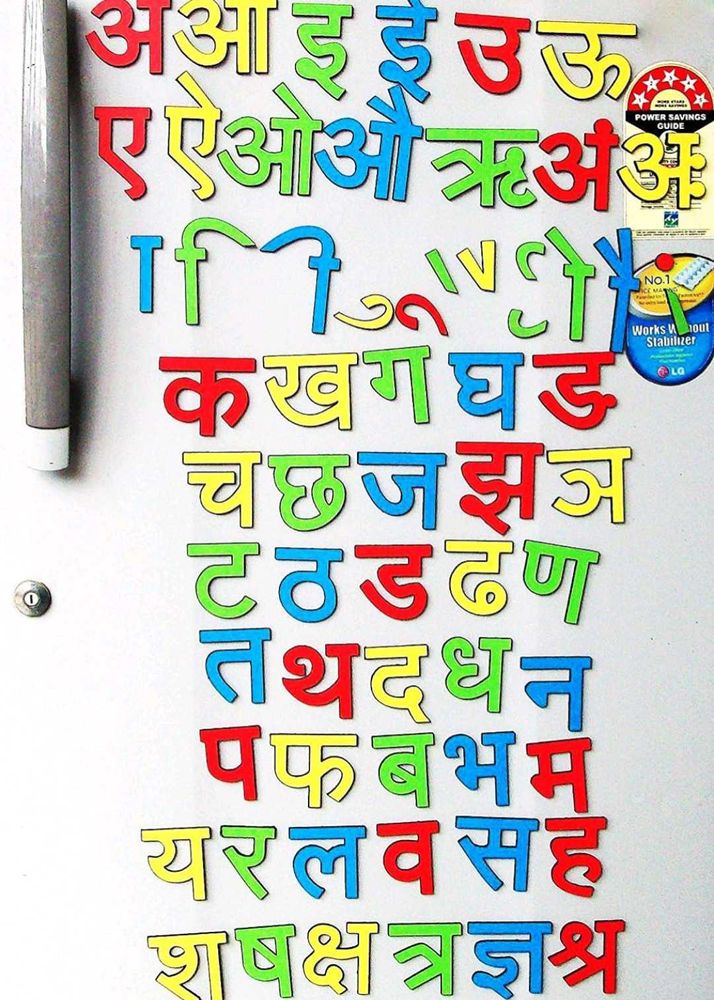 अ आ इ ई उ ऊ
ए ऐ ओ औ ऋ अं अः
MORE STARS
MORE SAVINGS
POWER SAVINGS
GUIDE
ा ि ी ु ू े ै ृ ो ौ
No.1
ICE MAKING
Works Without
Stabilizer
LG
क ख ग घ ङ
च छ ज झ ञ
ट ठ ड ढ ण
त थ द ध न
प फ ब भ म
य र ल व स ह
श ष क्ष त्र ज्ञ श्र